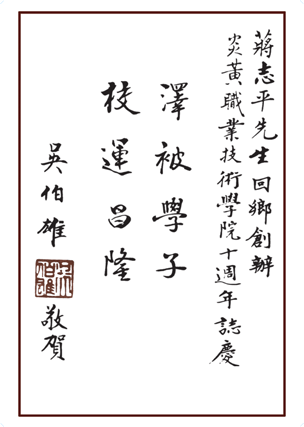 蔣志平先生回鄉創辦
炎黃職業技術學院十週年誌慶
澤被學子
校運昌隆
吳伯雄
吳伯雄
敬賀